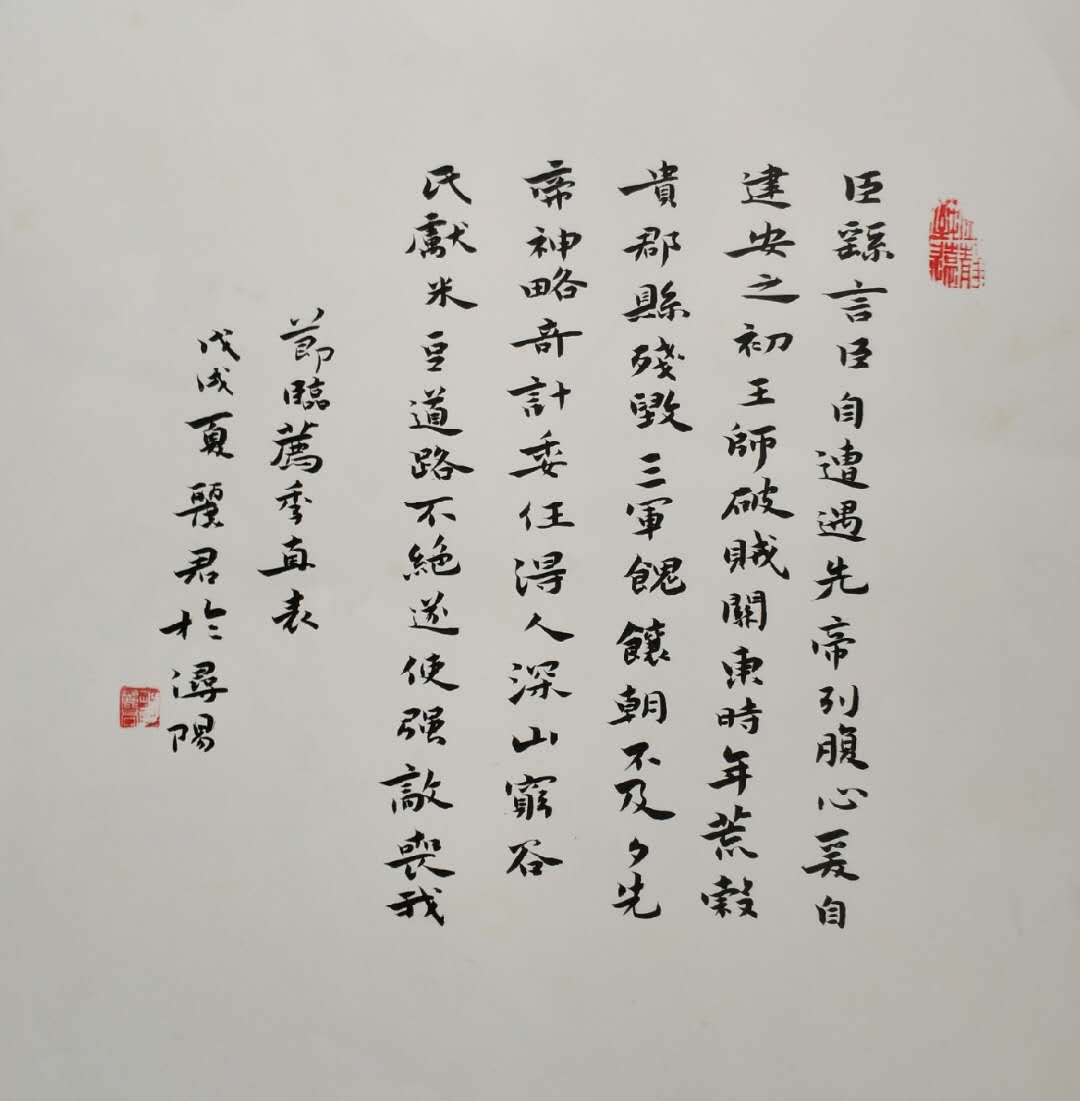 臣繇言臣自遭遇先帝列腹心爰自
建安之初王師破賊關東時年荒穀
貴郡縣殘毀三軍餽饟朝不及夕先
帝神略奇計委任得人深山窮谷
民獻米豆道路不絕遂使强敵喪我
節臨薦季直表
戊戌夏麗君於潯陽